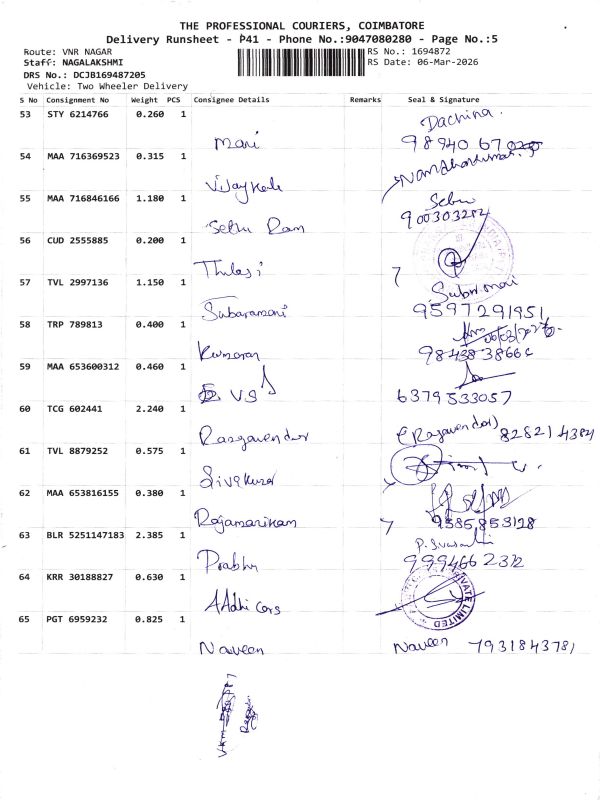 THE PROFESSIONAL COURIERS, COIMBATORE
Delivery Runsheet - P41 - Phone No.:9047080280 - Page No.:5
Route: VNR NAGAR
RS No.: 1694872
Staff: NAGALAKSHMI
RS Date: 06-Mar-2026
DRS No.: DCJB169487205
Vehicle: Two Wheeler Delivery
S No Consignment No Weight PCS Consignee Details Remarks Seal & Signature
53 STY 6214766 0.260 1
Dachina
Mani
98940 67
54 MAA 716369523 0.315 1
55 MAA 716846166 1.180 1
900303284
Ram
56 CUD 2555885 0.200 1
Thulasi
57 TVL 2997136 1.150 1
Subaramani
9597291951
58 TRP 789813 0.400 1
Kumaran
59 MAA 653600312 0.460 1
6379533057
60 TCG 602441 2.240 1
(Ragavendar)
61 TVL 8879252 0.575 1
62 MAA 653816155 0.380 1
9585853128
63 BLR 5251147183 2.385 1
Prabhu
9994662372
64 KRR 30188827 0.630 1
AAdhi Cars
PRIVATE LIMITED
65 PGT 6959232 0.825 1
Naveen
Naveen 7931843781